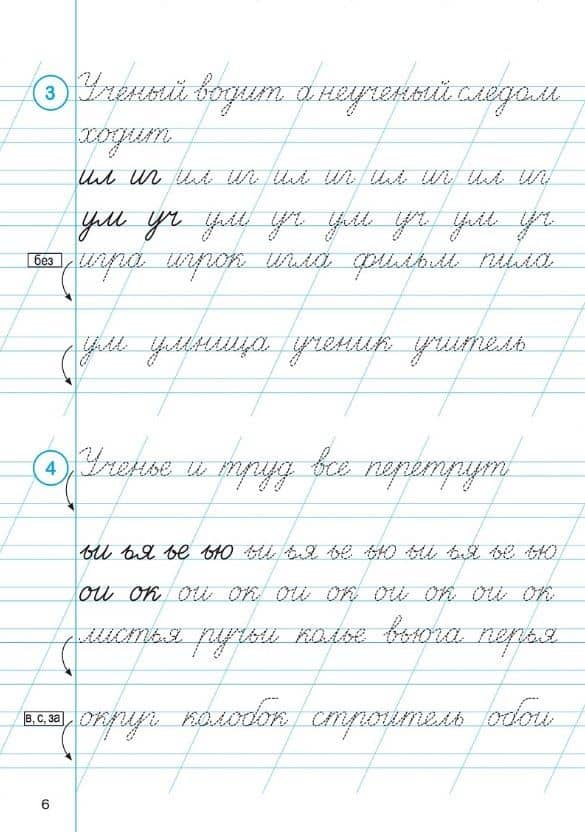 3 Ученый водит а неученый следом
ходит
ил иг ил иг ил иг ил иг ил иг
ум уч ум уч ум уч ум уч
без игра игрок игла фильм пила
ум умница ученик учитель
4 Ученье и труд все перетрут
ьи ья ье ью ьи ья ье ью ьи ья ье ью
ои ок ои ок ои ок ои ок ои ок
листья ручьи колье вьюга перья
в, с, за округ колобок строитель обои
6